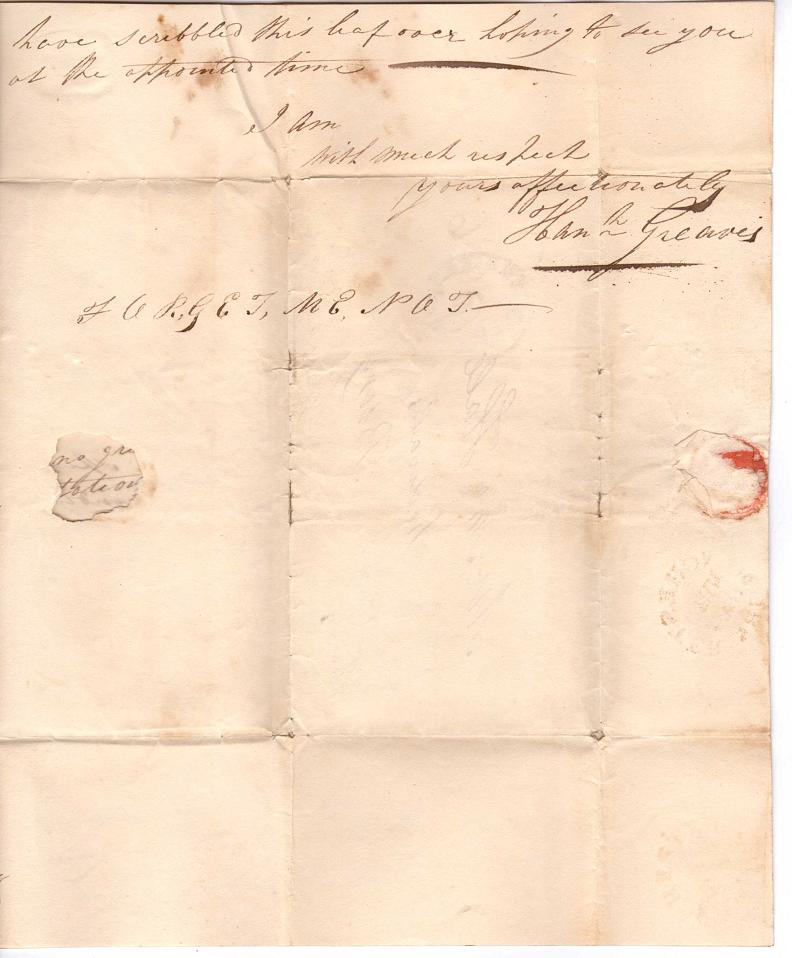 have scribbled this leaf over hoping to see you
at the appointed time
I am
with much respect
yours affectionately
Hanh Greaves
FORGET, ME, NOT
no gr
tation